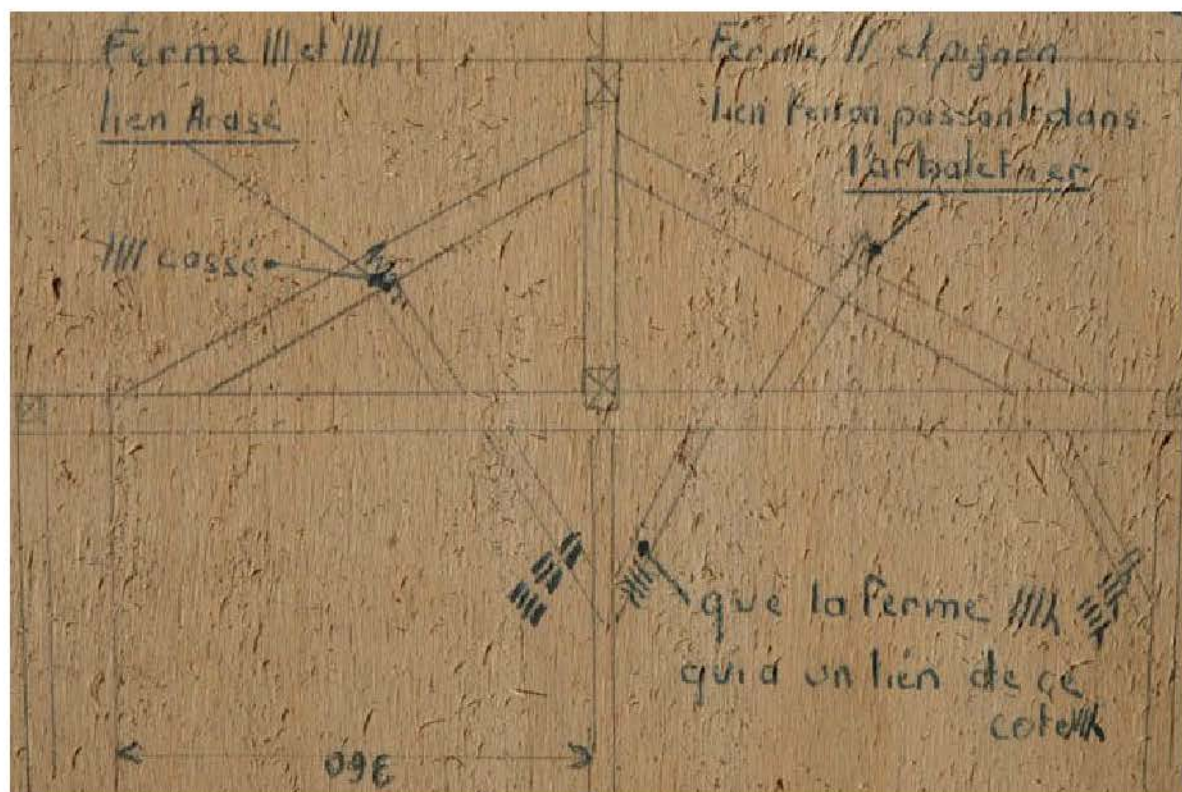 Ferme III et IIII
lien Arasé
IIII cassé
Ferme II et pignon
lien passant dans
l'arbaletrier
que la Ferme IIII
qui a un lien de ce
coté
360